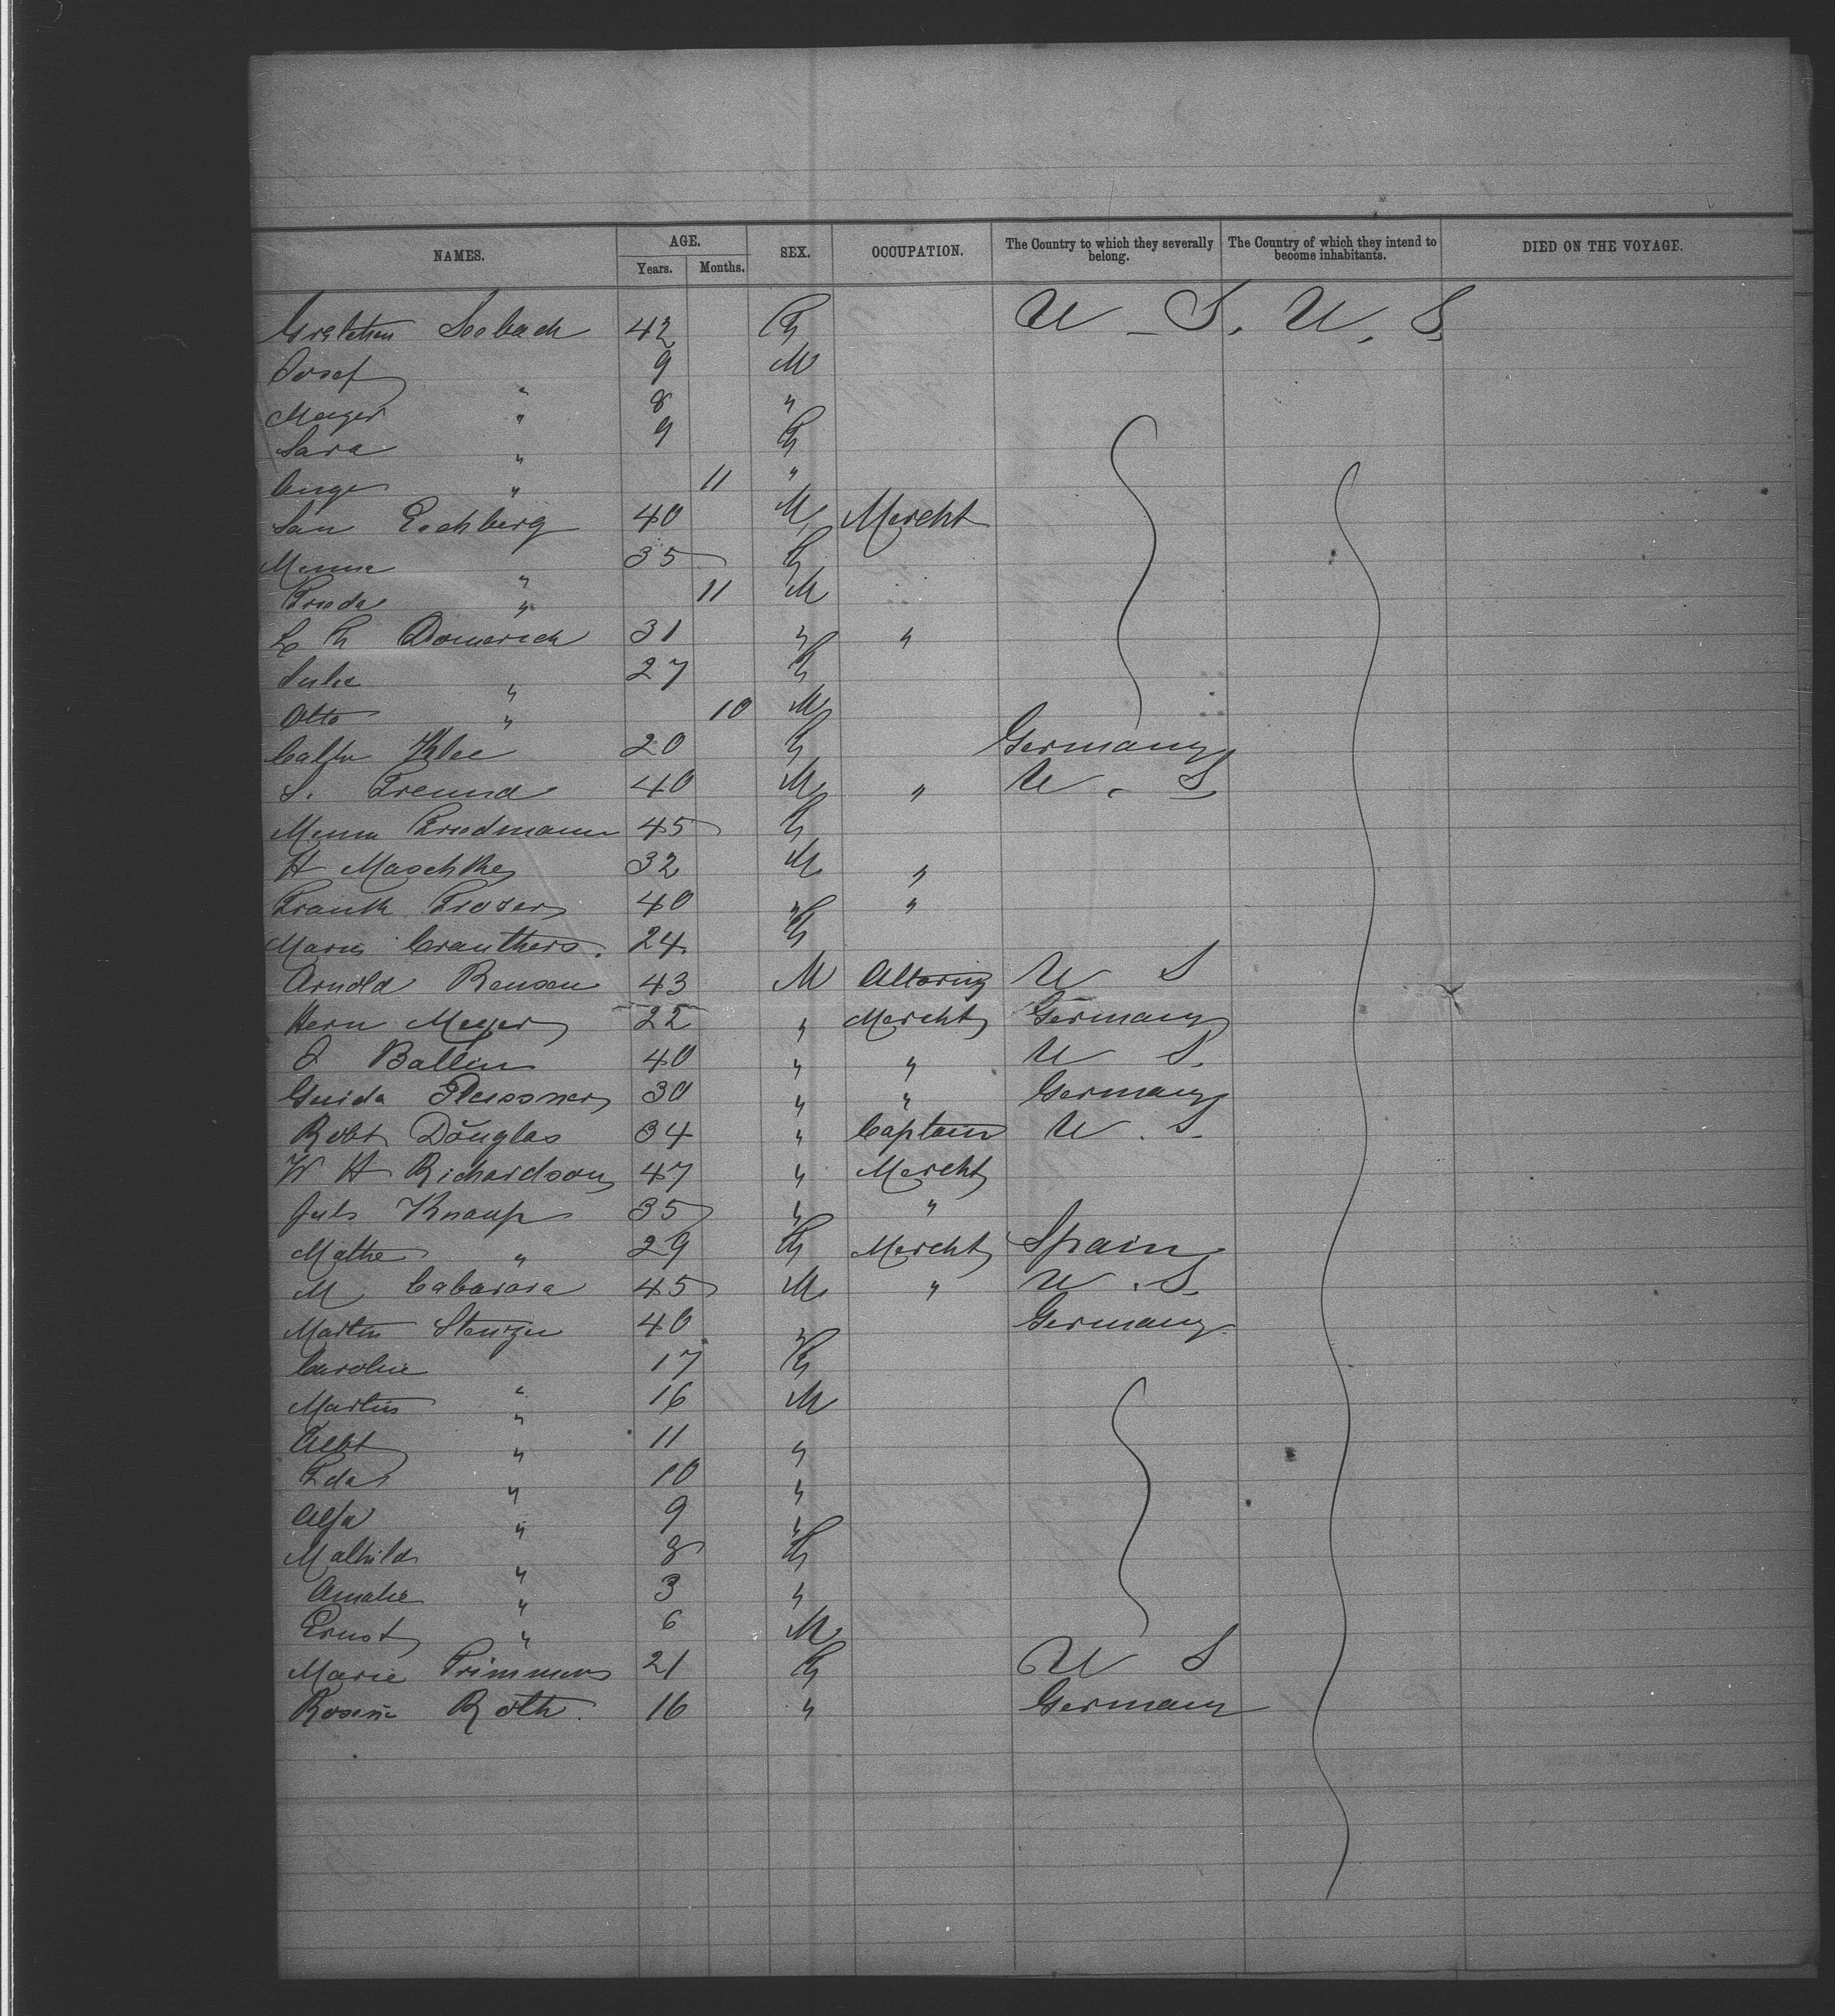 NAMES. AGE. SEX. OCCUPATION. The Country to which they severally belong. The Country of which they intend to become inhabitants. DIED ON THE VOYAGE.
Years. Months.
Gretchen Seebach 42 F U - S. U. S.
Josef " 9 M
Meyer " 8 "
Sara " 9 F
" 11 "
Sam Eschberg 40 M Mercht
Minna " 35 F
Frieda " 11 M
L F Domerich 31 " "
Julie " 27 F
Otto " 10 M
Klee 20 F Germany
S. Freund 40 M " U. S.
Minna Friedmann 45 F
H Maschke 32 M "
Frank Froser 40 " "
Marie Cranthers. 24 F
Arnold Rensen 43 M Attorny U S
Hern Meyer 22 " Mercht Germany
J Ballin 40 " " U S.
Guida Pleissner 30 " " Germany
Robt Douglas 34 " Captain U. S.
W H Richardson 47 " Mercht
Juls Knaup 35 " "
Mathe " 29 F Mercht Spain
M Cabarara 45 M " U. S.
Martin Stenzer 40 " Germany
Caroline " 17 F
Martin " 16 M
Albt " 11 "
Eda " 10 "
Alfr " 9 "
Mathild " 8 F
Amalie " 3 "
Ernst " 6 M
Marie Primmer 21 F U S
Rosine Roth. 16 " Germany